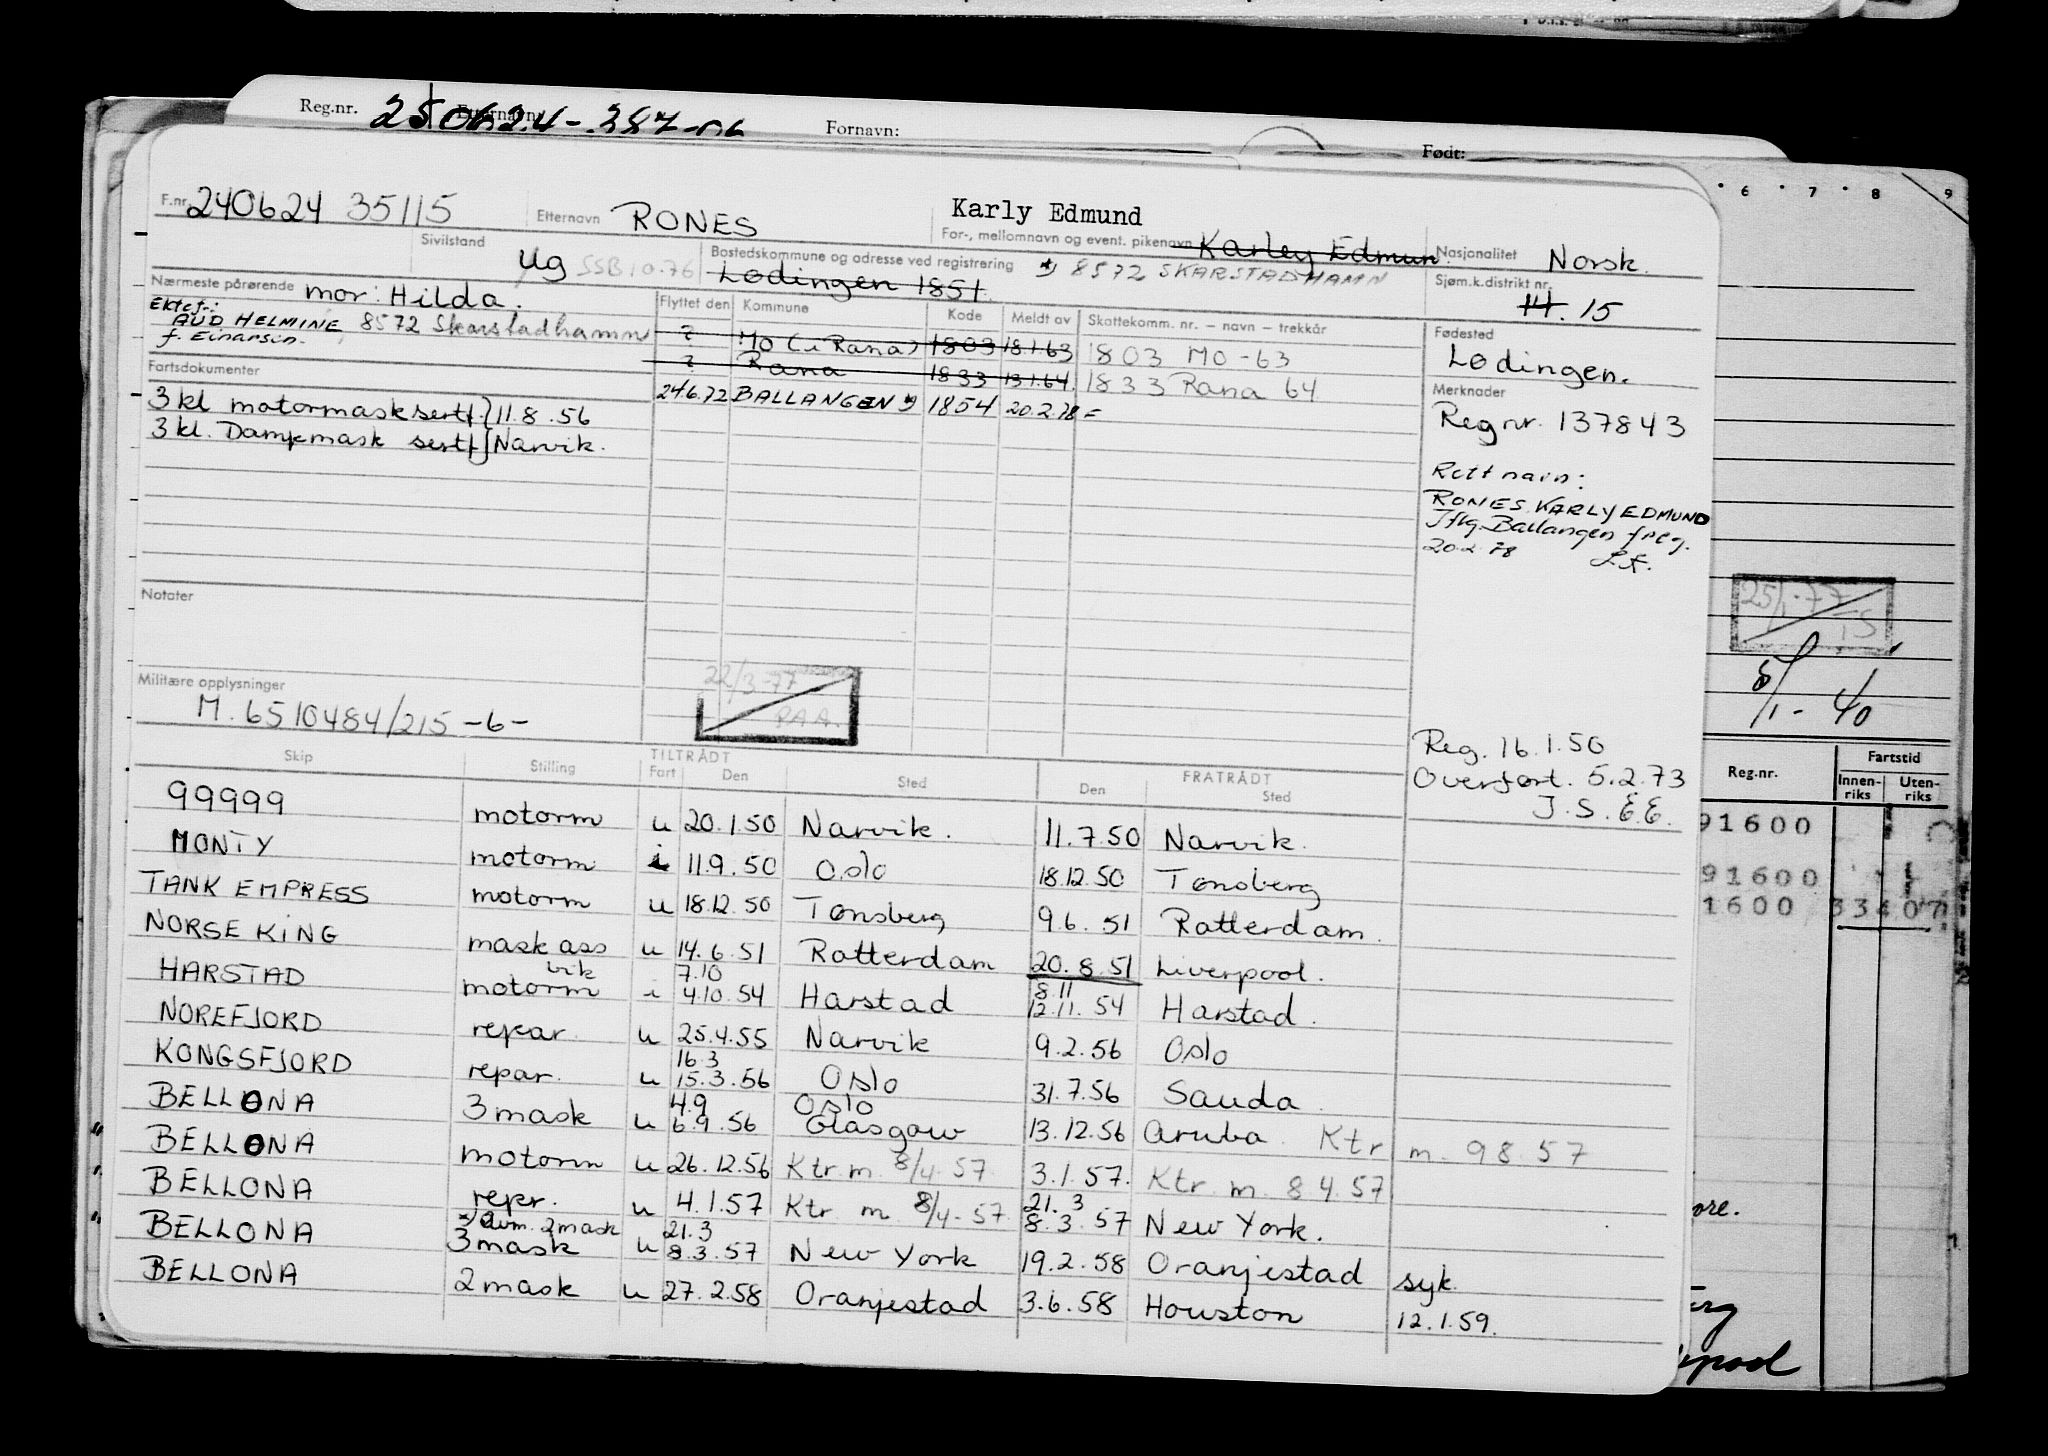 Reg.nr. 250624-387-06 Etternavn: Fornavn: Født:
6 7 8 9
F.nr. 240624 35115 Etternavn RONES Karly Edmund
For-, mellomnavn og event. pikenavn Karley Edmun Nasjonalitet Norsk.
Sivilstand Ug SSB 10.76 Bostedskommune og adresse ved registrering *) 8572 SKARSTADHAMN
Lødingen 1851 Sjøm.k.distrikt nr. 14. 15
Nærmeste pårørende mor: Hilda.
Ektef.: AUD HELMINE 8572 Skarstadhamn
f. Einarsen.
Flyttet den Kommune Kode Meldt av Skattekomm. nr. – navn – trekkår
? Mo (i Rana) 1803 18.1.63 1803 MO-63
? Rana 1833 13.1.64. 1833 Rana 64
24.6.72 BALLANGEN *) 1854 20.2.78 =
Fødested
Lødingen.
Merknader
Reg nr. 137843
Rett navn:
RONES, KARLY EDMUND
Iflg. Ballangen freg.
20.2.78
Fartsdokumenter
3 kl motormasksertf } 11.8.56
3 kl. Dampmask sertf } Narvik.
Notater
Militære opplysninger
M. 6510484/215 -6-
22/3-77
PAA.
25/1-77
TS
8/1-40
Reg. 16.1.50
Overført. 5.2.73
J.S.E.E.
Reg.nr. Fartstid
Innen-riks Uten-riks
91600
91600
1600 33407
Skip Stilling TILTRÅDT Fart Den Sted FRATRÅDT Den Sted
99999 motorm u 20.1.50 Narvik. 11.7.50 Narvik.
MONTY motorm i 11.9.50 Oslo 18.12.50 Tønsberg
TANK EMPRESS motorm u 18.12.50 Tønsberg 9.6.51 Rotterdam.
NORSE KING mask ass u 14.6.51 Rotterdam 20.8.51 Liverpool.
HARSTAD vik motorm i 7.10 4.10.54 Harstad 8.11 12.11.54 Harstad.
NOREFJORD repar. u 25.4.55 Narvik 9.2.56 Oslo
KONGSFJORD repar. u 16.3 15.3.56 Oslo 31.7.56 Sauda.
BELLONA 3 mask u 4.9 6.9.56 Oslo Glasgow 13.12.56 Aruba. Ktr m. 9 8.57
BELLONA motorm u 26.12.56 Ktr. m. 8/4-57 3.1.57. Ktr. m. 8 4.57
BELLONA repr. u 4.1.57 Ktr m 8/4-57 21.3 8.3.57 New York.
BELLONA *) Avm. 2 mask 3 mask u 21.3 8.3.57 New York 19.2.58 Oranjestad syk.
BELLONA 2 mask u 27.2.58 Oranjestad 3.6.58 Houston 12.1.59.